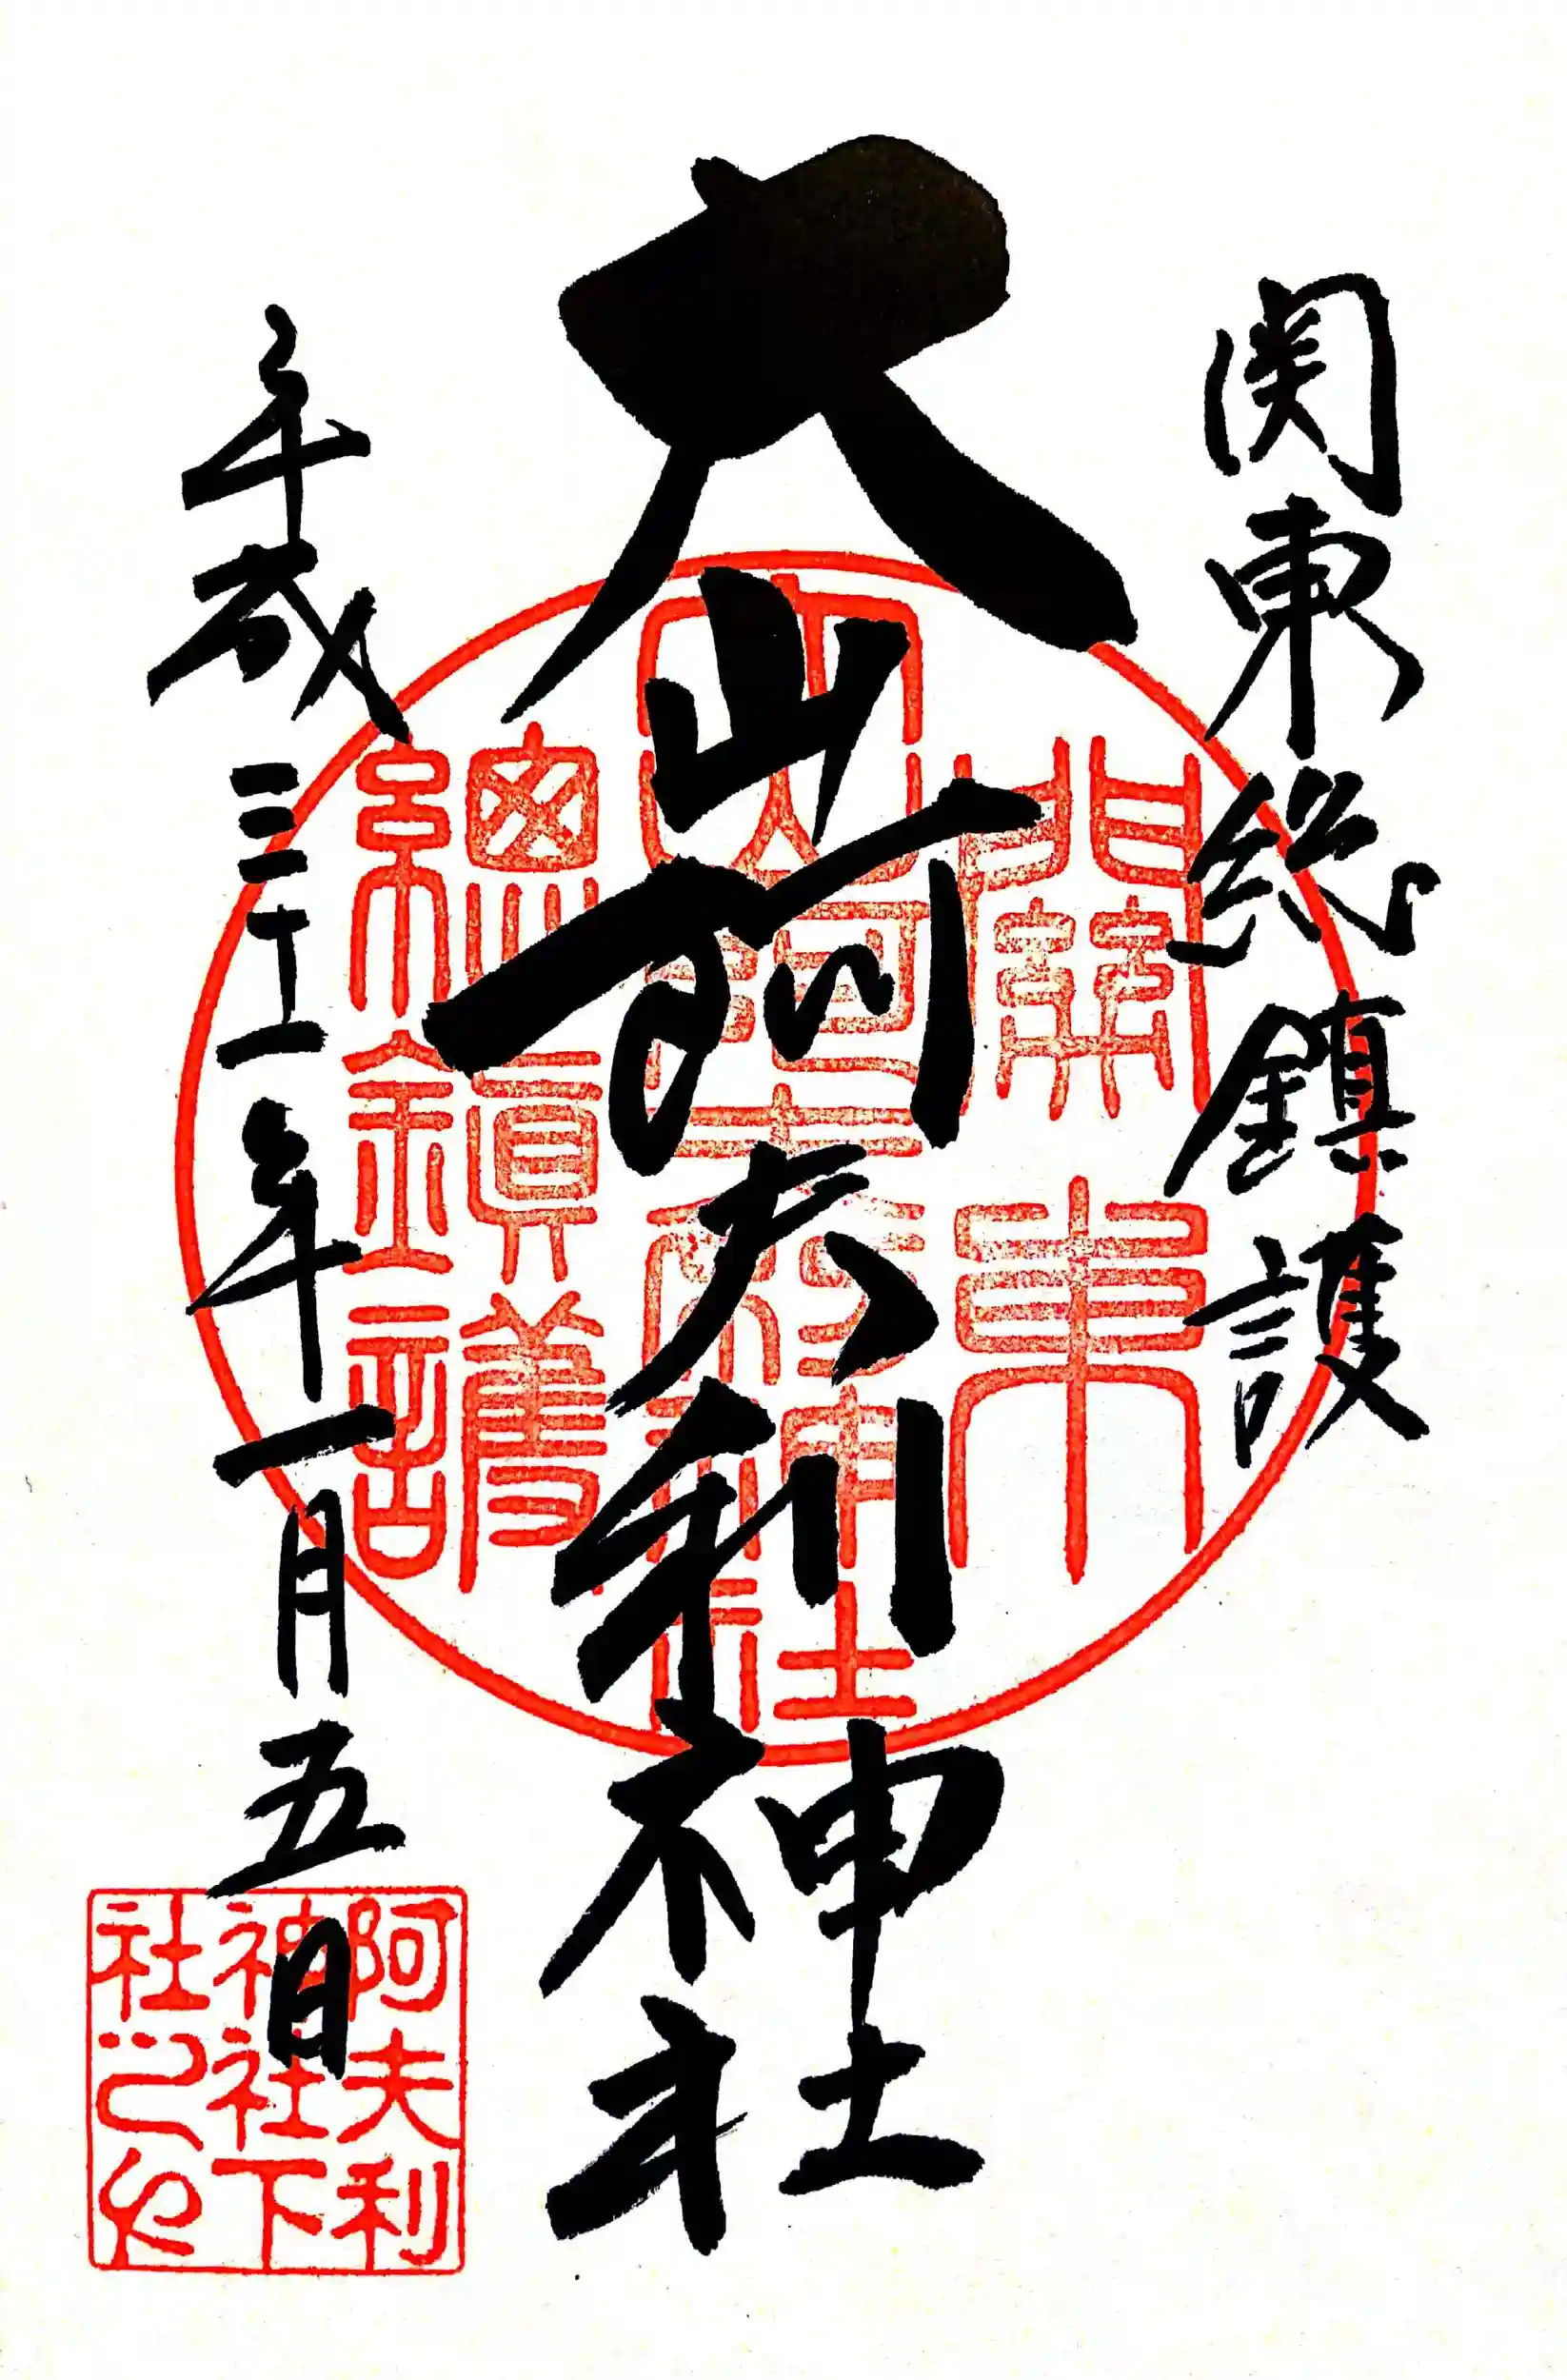 関東総鎮護
大山阿夫利神社
平成三十一年一月五日
關東
大山阿夫利神社
總鎭護
阿夫利
神社下
社之印